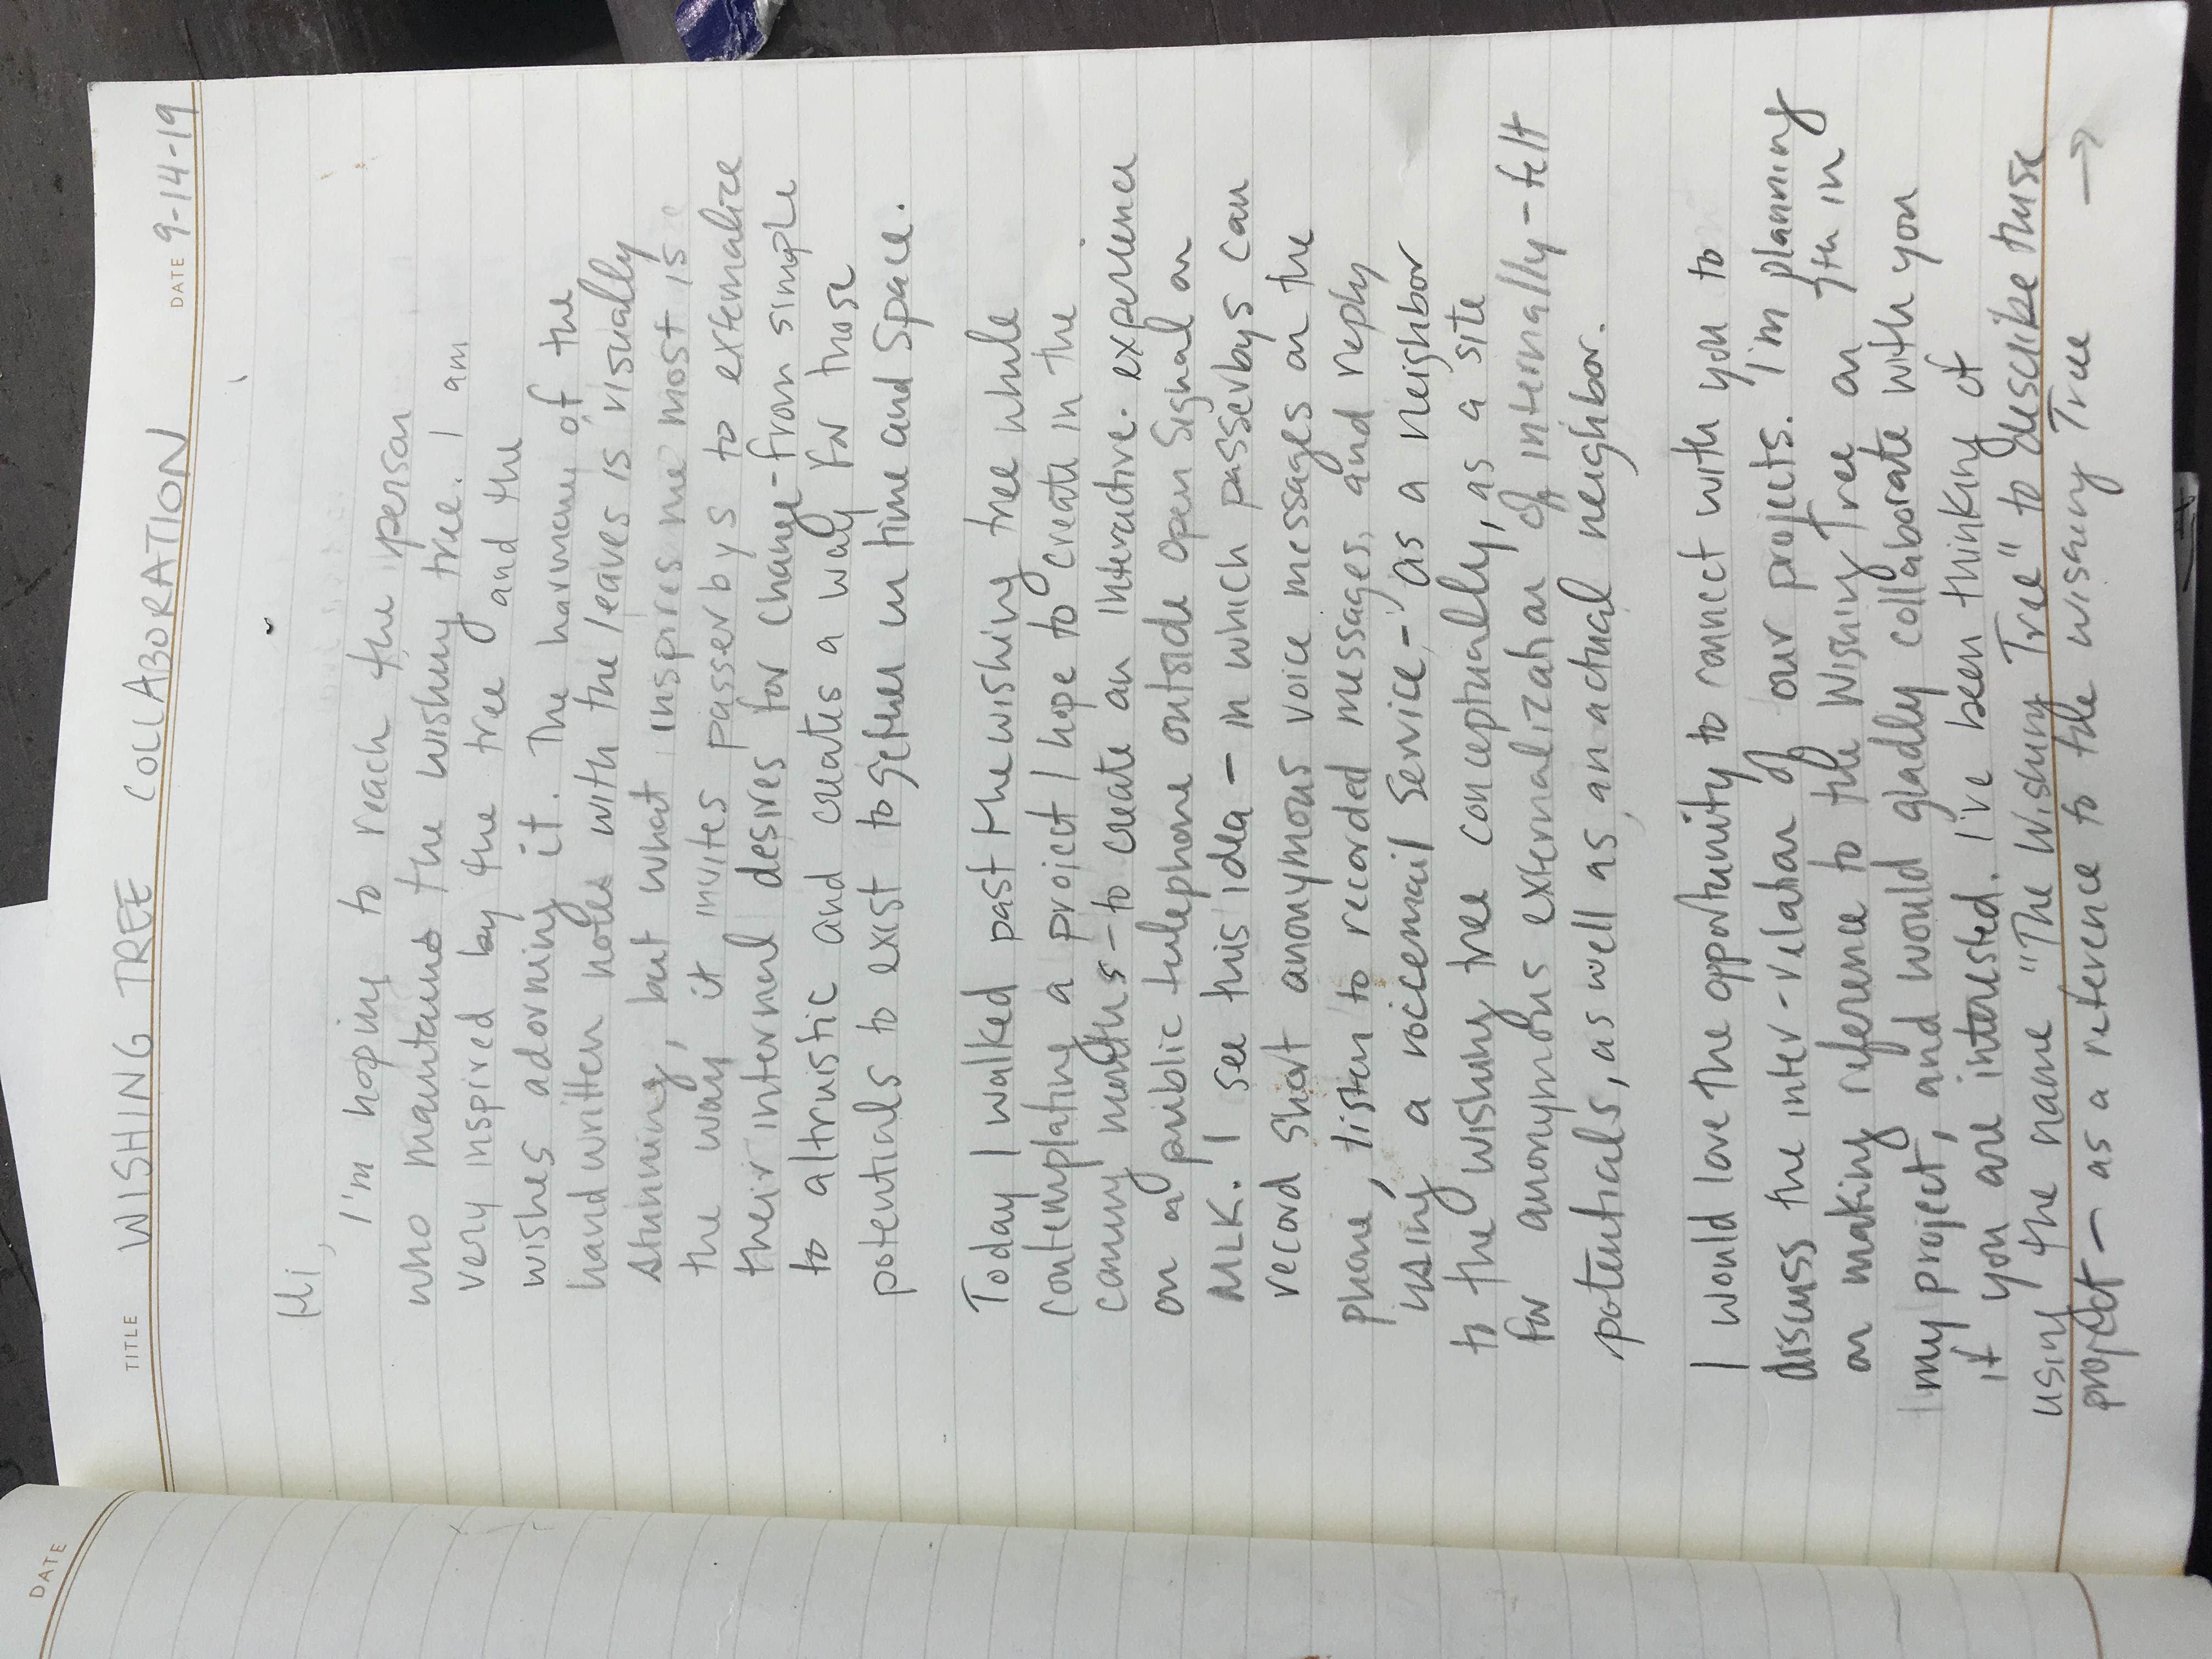 DATE
TITLE WISHING TREE COLLABORATION DATE 9-14-19
Hi,
I'm hoping to reach the person
who maintains the wishing tree. I am
very inspired by the tree and the
wishes adorning it. The harmony of the
handwritten notes with the leaves is visually
stunning, but what inspires me most is
the way it invites passerbys to externalize
their internal desires for change-from simple
to altruistic and creates a way for those
potentials to exist together in time and space.
Today I walked past the wishing tree while
contemplating a project I hope to create in the
coming months - to create an interactive experience
on a public telephone outside Open Signal on
MLK. I see this idea - in which passerbys can
record short anonymous voice messages on the
phone, listen to recorded messages, and reply
using a voicemail service - as a neighbor
to the wishing tree conceptually, as a site
for anonymous externalization of internally-felt
potentials, as well as an actual neighbor.
I would love the opportunity to connect with you to
discuss the inter-relation of our projects. I'm planning
on making reference to the Wishing Tree on 7th in
my project, and would gladly collaborate with you
if you are interested. I've been thinking of
using the name "The Wishing Tree" to describe these
project - as a reference to the Wishing Tree →